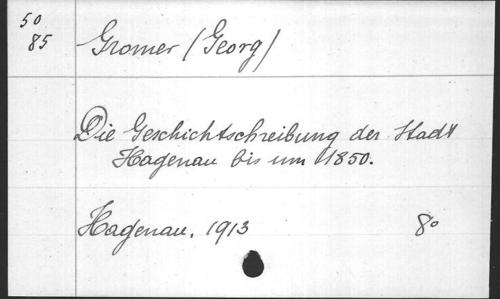 50
85
Gromer (Georg)
Die Geschichtschreibung der Stadt
Hagenau bis um 1850.
Hagenau, 1913 8°